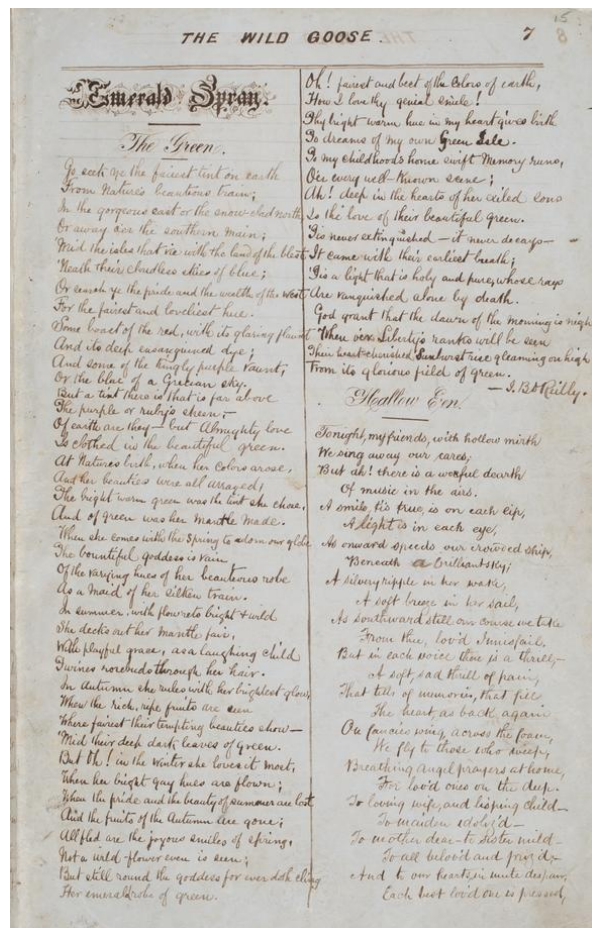 15
THE WILD GOOSE.
7
8
Emerald Spray.
The Green.
Go seek ye the fairest tint on earth
From Nature's beauteous train;
In the gorgeous east or the snow-clad north
Or away o'er the southern main;
'Mid the isles that vie with the land of the blest
'Neath their cloudless skies of blue;
Or search ye the pride and the wealth of the west
For the fairest and loveliest hue.
Some boast of the red, with its glaring flaunt
And its deep ensanguined dye;
And some of the kingly purple vaunt,
Or the blue of a Grecian sky.
But a tint there is that is far above
The purple or ruby's sheen;—
Of earth are they — but Almighty love
Is clothed in the beautiful green.
At Nature's birth, when her colors arose,
And her beauties were all arrayed,
The bright warm green was the tint she chose,
And of green was her mantle made.
When she comes with the Spring to adorn our globe
The bountiful goddess is vain
Of the varying hues of her beauteous robe
As a maid of her silken train.
In summer, with flowrets bright & wild
She decks out her mantle fair,
With playful grace, as a laughing child
Twines rosebuds through her hair.
In Autumn she rules with her brightest glow,
When the rich, ripe fruits are seen
Where fairest their tempting beauties show—
'Mid their deep dark leaves of green.
But Oh! in the winter she loves it most,
When her bright gay hues are flown;
When the pride and the beauty of summer are lost
And the fruits of the Autumn are gone;
All fled are the joyous smiles of spring,
Not a wild-flower even is seen;
But still round the goddess for ever doth cling
Her emerald robe of green.
Oh! fairest and best of the colors of earth,
How I love thy genial smile!
Thy bright warm hue in my heart gives birth
To dreams of my own Green Isle.
To my childhood's home swift Memory runs,
O'er every well-known scene;
Ah! deep in the hearts of her exiled sons
Is the love of their beautiful green.
'Tis never extinguished — it never decays—
It came with their earliest breath;
'Tis a light that is holy and pure, whose rays
Are vanquished alone by death.
God grant that the dawn of the morning is nigh
When in Liberty's ranks will be seen
Their heart-cherished Sunburst rise gleaming on high
From its glorious field of green.
— J. B. O'Reilly.
Hallow E'en.
Tonight, my friends, with hollow mirth
We sing away our cares;
But ah! there is a woeful dearth
Of music in the airs.
A smile, 'tis true, is on each lip,
A light is in each eye,
As onward speeds our crowded ship,
Beneath a brilliant sky;
A silvery ripple in her wake,
A soft breeze in her sail,
As southward still our course we take
From thee, lov'd Innisfail.
But in each voice there is a thrill,—
A soft, sad thrill of pain,
That tells of memories, that fill
The heart, as back again
On fancies wing, across the foam,
We fly to those who weep,
Breathing angel prayers at home,
For lov'd ones on the deep.
To loving wife, and lisping child—
To maiden
To mother dear — to Sister mild—
To all belov'd and
And to our hearts, in mute despair,
Each last lov'd one is pressed,